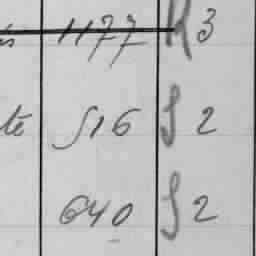 1177 K 3
te 516 S 2
640 S 2